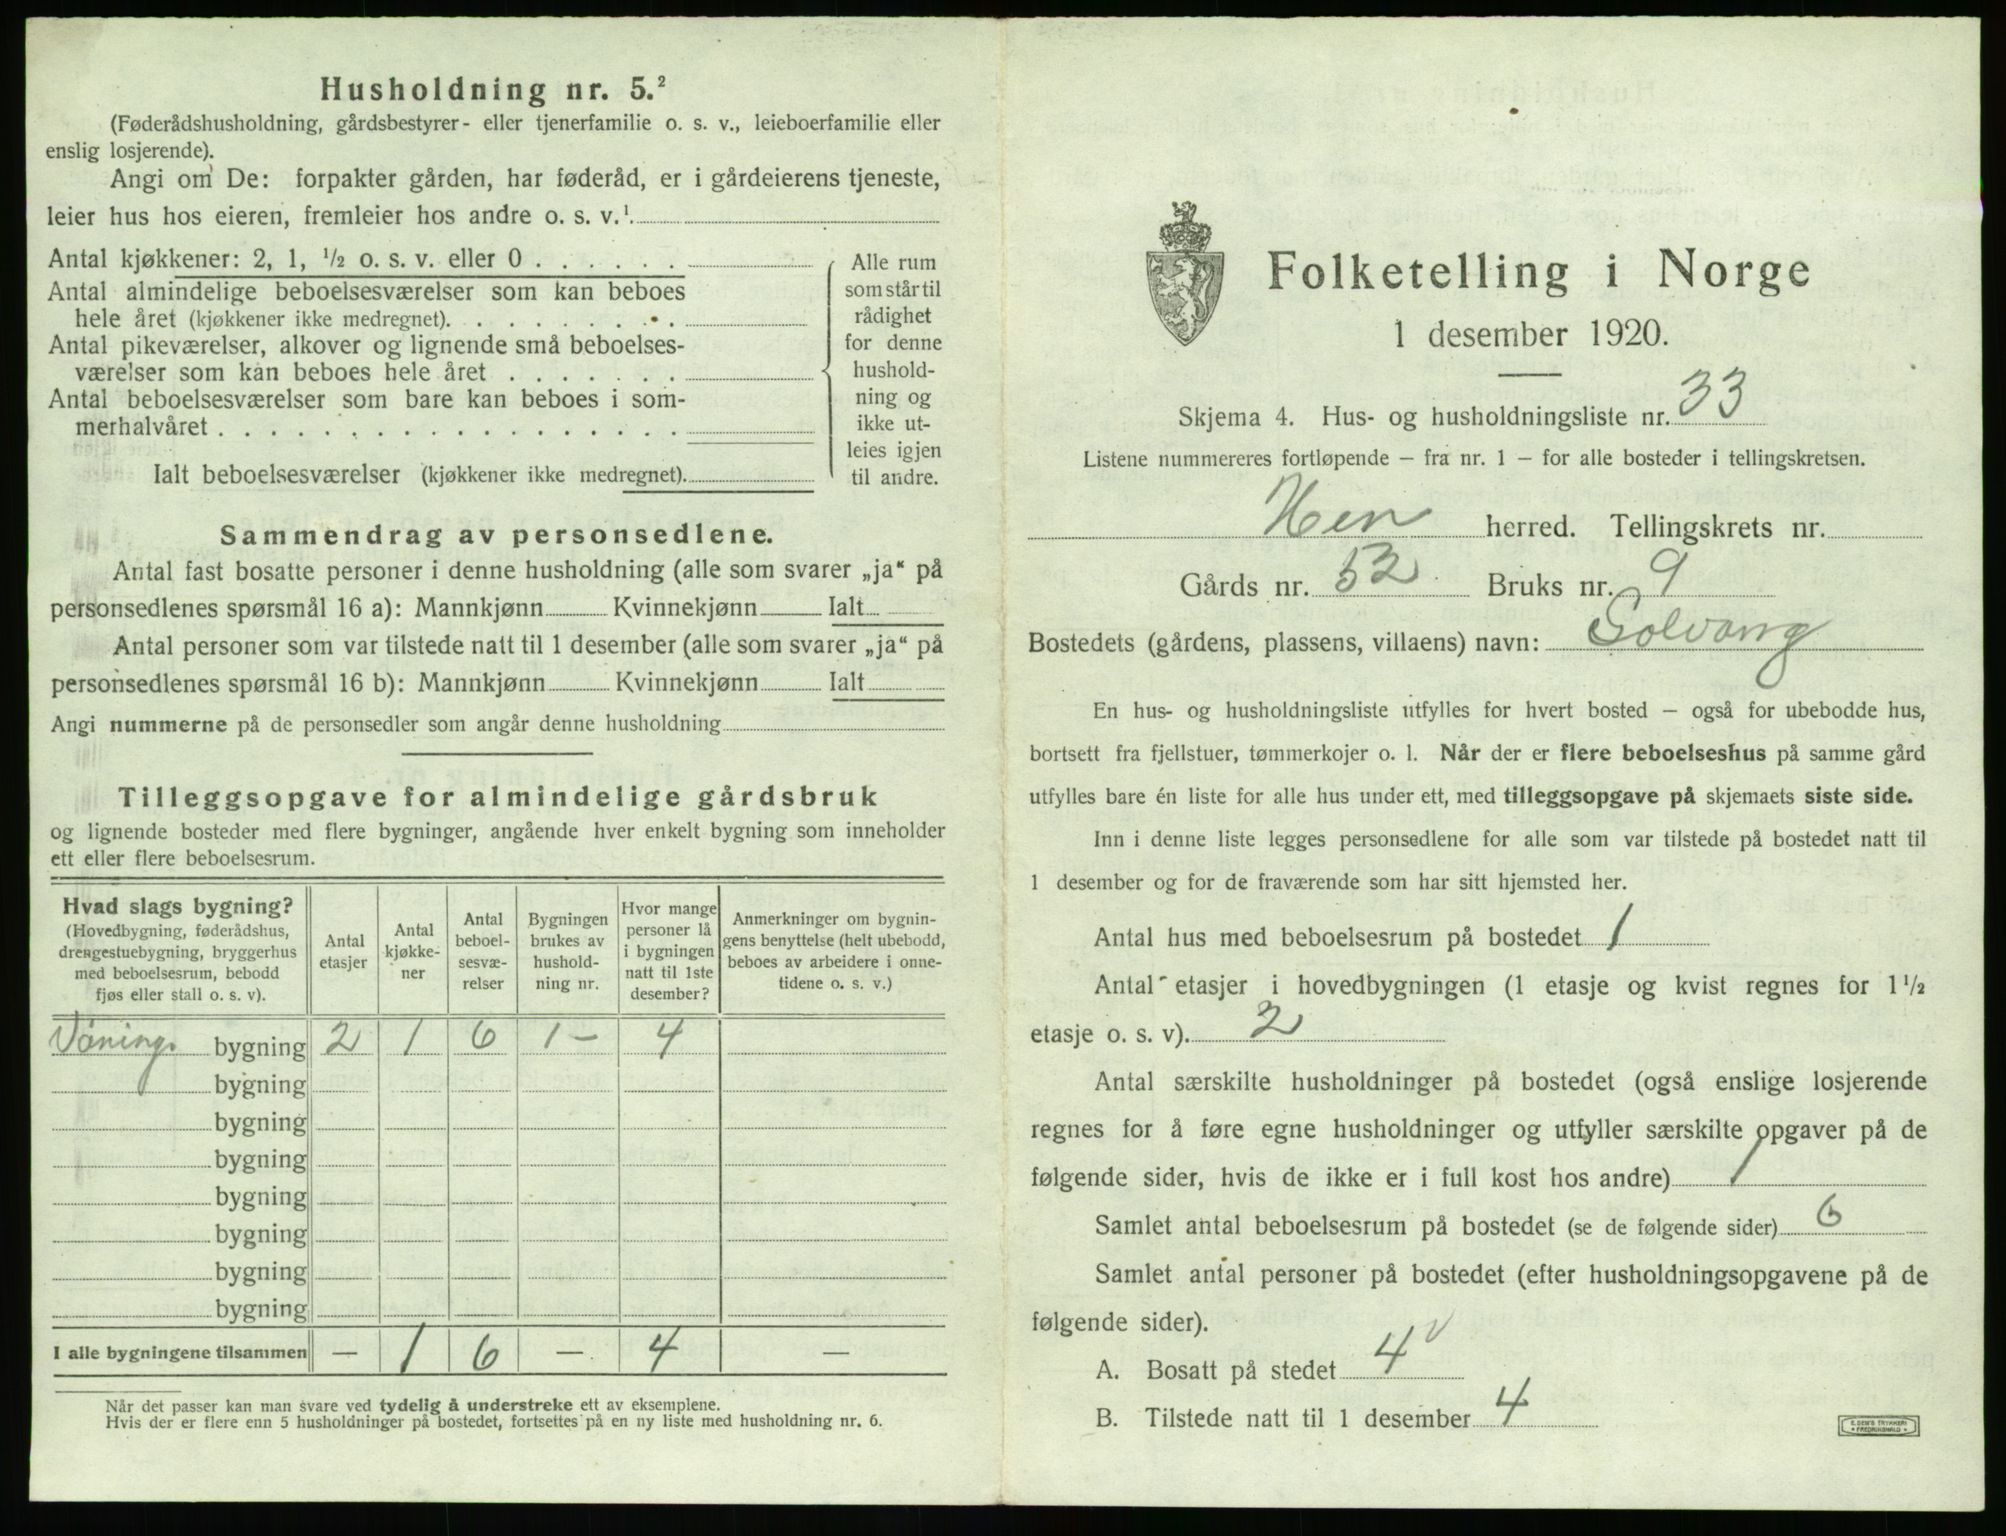 Husholdning nr. 5.²
(Føderådshusholdning, gårdsbestyrer- eller tjenerfamilie o. s. v., leieboerfamilie eller
enslig losjerende).
Angi om De: forpakter gården, har føderåd, er i gårdeierens tjeneste,
leier hus hos eieren, fremleier hos andre o. s. v.¹
Antal kjøkkener: 2, 1, ½ o. s. v. eller 0 . . . . . .
Antal almindelige beboelsesværelser som kan beboes
hele året (kjøkkener ikke medregnet). . . . . . . . .
Antal pikeværelser, alkover og lignende små beboelses-
værelser som kan beboes hele året . . . . . . .
Antal beboelsesværelser som bare kan beboes i som-
merhalvåret . . . . . . . . . . . . . . . . . .
Ialt beboelsesværelser (kjøkkener ikke medregnet).
Alle rum
som står til
rådighet
for denne
hushold-
ning og
ikke ut-
leies igjen
til andre.
Sammendrag av personsedlene.
Antal fast bosatte personer i denne husholdning (alle som svarer „ja“ på
personsedlenes spørsmål 16 a): Mannkjønn Kvinnekjønn Ialt
Antal personer som var tilstede natt til 1 desember (alle som svarer „ja“ på
personsedlenes spørsmål 16 b): Mannkjønn Kvinnekjønn Ialt
Angi nummerne på de personsedler som angår denne husholdning
Tilleggsopgave for almindelige gårdsbruk
og lignende bosteder med flere bygninger, angående hver enkelt bygning som inneholder
ett eller flere beboelsesrum.
Hvad slags bygning?
(Hovedbygning, føderådshus,
drengestuebygning, bryggerhus
med beboelsesrum, bebodd
fjøs eller stall o. s. v).
Antal
etasjer
Antal
kjøkke-
ner
Antal
beboel-
sesvæ-
relser
Bygningen
brukes av
hushold-
ning nr.
Hvor mange
personer lå
i bygningen
natt til 1ste
desember?
Anmerkninger om bygnin-
gens benyttelse (helt ubebodd,
beboes av arbeidere i onne-
tidene o. s. v.)
Vånings bygning 2 1 6 1 – 4
bygning
bygning
bygning
bygning
bygning
bygning
bygning
I alle bygningene tilsammen — 1 6 — 4 —
Når det passer kan man svare ved tydelig å understreke ett av eksemplene.
Hvis der er flere enn 5 husholdninger på bostedet, fortsettes på en ny liste med husholdning nr. 6.
Folketelling i Norge
1 desember 1920.
Skjema 4. Hus- og husholdningsliste nr. 33
Listene nummereres fortløpende – fra nr. 1 – for alle bosteder i tellingskretsen.
Hen herred. Tellingskrets nr.
Gårds nr. 52 Bruks nr. 9
Bostedets (gårdens, plassens, villaens) navn: Solvang
En hus- og husholdningsliste utfylles for hvert bosted – også for ubebodde hus,
bortsett fra fjellstuer, tømmerkojer o. l. Når der er flere beboelseshus på samme gård
utfylles bare én liste for alle hus under ett, med tilleggsopgave på skjemaets siste side.
Inn i denne liste legges personsedlene for alle som var tilstede på bostedet natt til
1 desember og for de fraværende som har sitt hjemsted her.
Antal hus med beboelsesrum på bostedet 1
Antal etasjer i hovedbygningen (1 etasje og kvist regnes for 1½
etasje o. s. v). 2
Antal særskilte husholdninger på bostedet (også enslige losjerende
regnes for å føre egne husholdninger og utfyller særskilte opgaver på de
følgende sider, hvis de ikke er i full kost hos andre) 1
Samlet antal beboelsesrum på bostedet (se de følgende sider) 6
Samlet antal personer på bostedet (efter husholdningsopgavene på de
følgende sider).
A. Bosatt på stedet 4 v
B. Tilstede natt til 1 desember 4
E. SEM'S TRYKKERI
FREDRIKSHALD